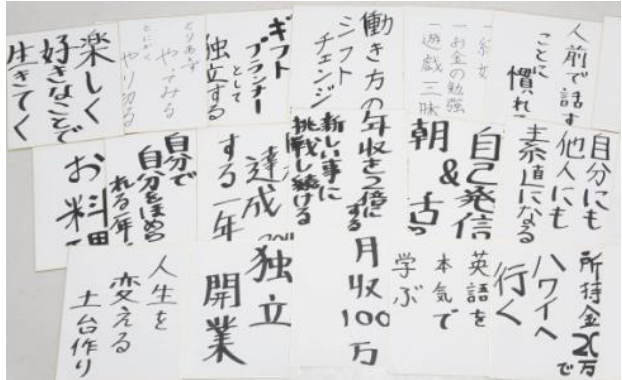 人前で話す
ことに
慣れ
一お金の勉強
一遊戯三昧
働き方の
シフト
チェンジ
ギフト
プランナー
として
独立する
とりあえず
やってみる
とにかく
やり切る
楽しく
好きなことで
生きてく
自分にも
他人にも
素直になる
自己発信
&
朝
年収を2億に
する
新しい事に
挑戦し続ける
達成
する一年
自分で
自分をほめら
れる一年
お料
所持金20万
で
ハワイへ
行く
英語を
本気で
学ぶ
月収100万
独立
開業
人生を
変える
土台作り